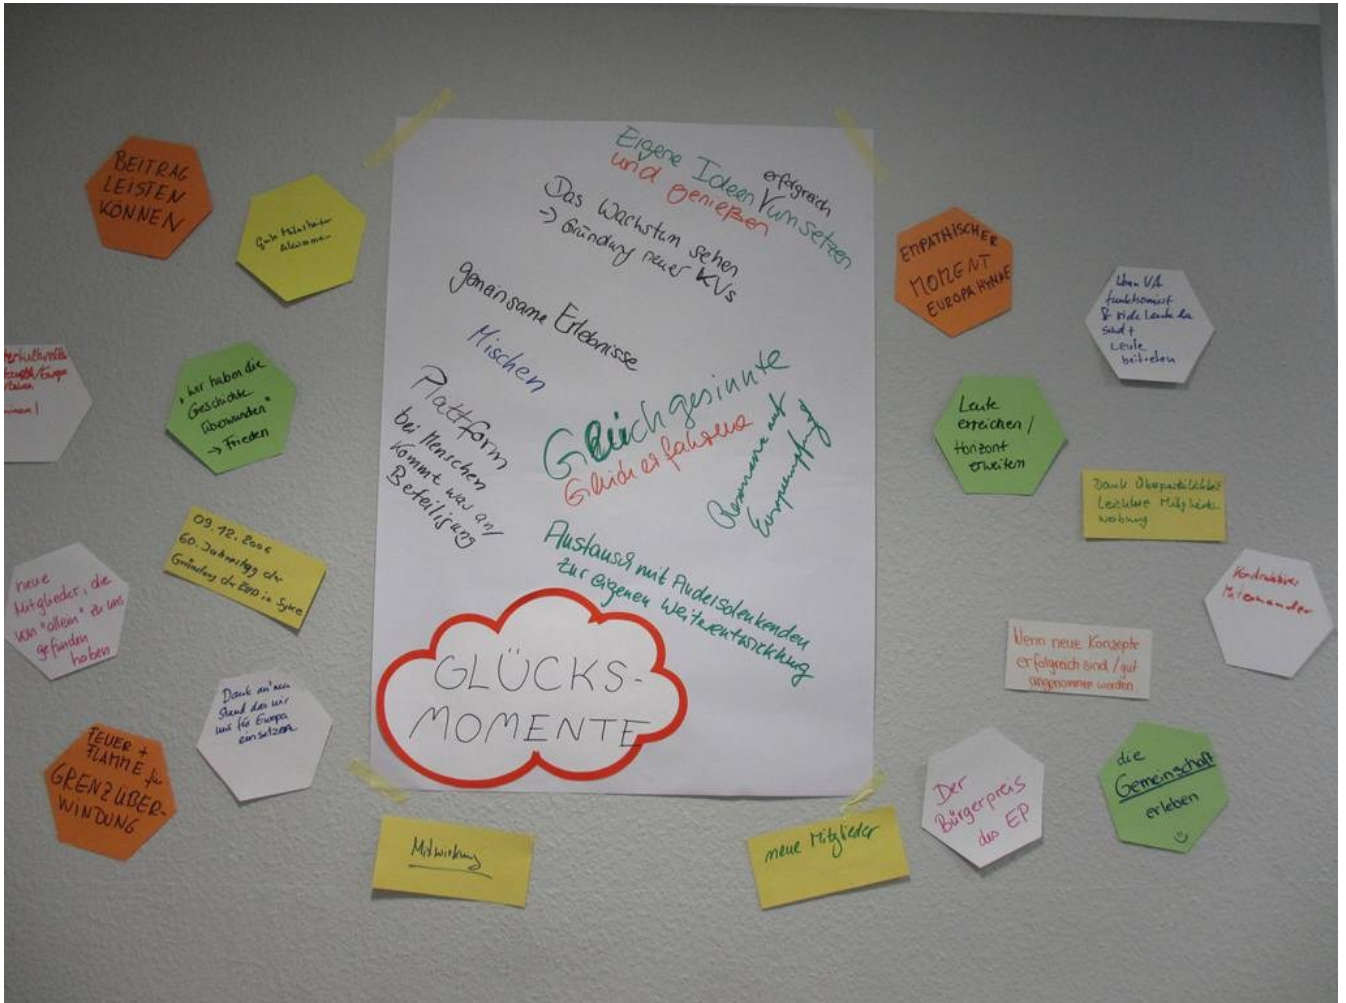 BEITRAG
LEISTEN
KÖNNEN
Gute Mitarbeiter
"wir haben die
Geschichte
überwunden"
→ Frieden
60. Jahrestag der
Gründung der EUD in Syke
neue
Mitglieder, die
von "allein" zu uns
gefunden
haben
Dank an'nen
Stand das wir
uns für Europa
einsetzen
FEUER +
FLAMME für
GRENZÜBER-
WINDUNG
Eigene Ideen erfolgreich umsetzen
und genießen
Das Wachstum sehen
-> Gründung neuer KVs
gemeinsame Erlebnisse
Mischen
Plattform
bei Menschen
kommt was an/
Beteiligung
Gleichgesinnte
Gleicherfahrene
Resonanz auf
Austausch mit Andersdenkenden
zur eigenen Weiterentwicklung
GLÜCKS-
MOMENTE
Mitwirkung
neue Mitglieder
EMPATHISCHER
MOMENT
EUROPAHYMNE
Wenn VA
funktioniert
& viele Leute da
sind +
Leute
beitreten
Leute
erreichen /
Horizont
erweitern
Dank Überparteilichkeit
Leichtere Mitglieder
werbung
Konstruktives
Miteinander
Wenn neue Konzepte
erfolgreich sind / gut
angenommen werden
Der
Bürgerpreis
des EP
die
Gemeinschaft
erleben